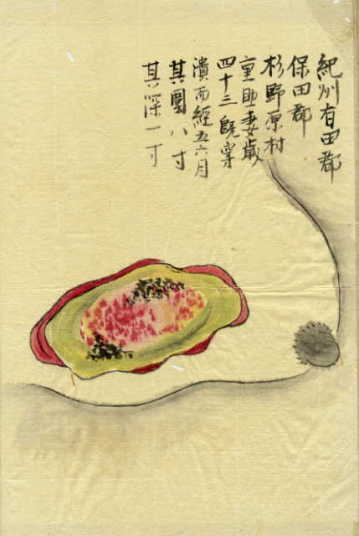 紀州有田郡
保田郡
杉野原村
重助妻歳
四十三既穿
潰而經五六月
其圍八寸
其深一寸